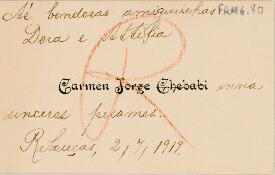 Às bondosas amiguinhas FRM6.80
Dora e Attilia
Carmen Jorge Chebabi envia
sinceros pezames.
Rebouças, 2, 7, 1919.
R